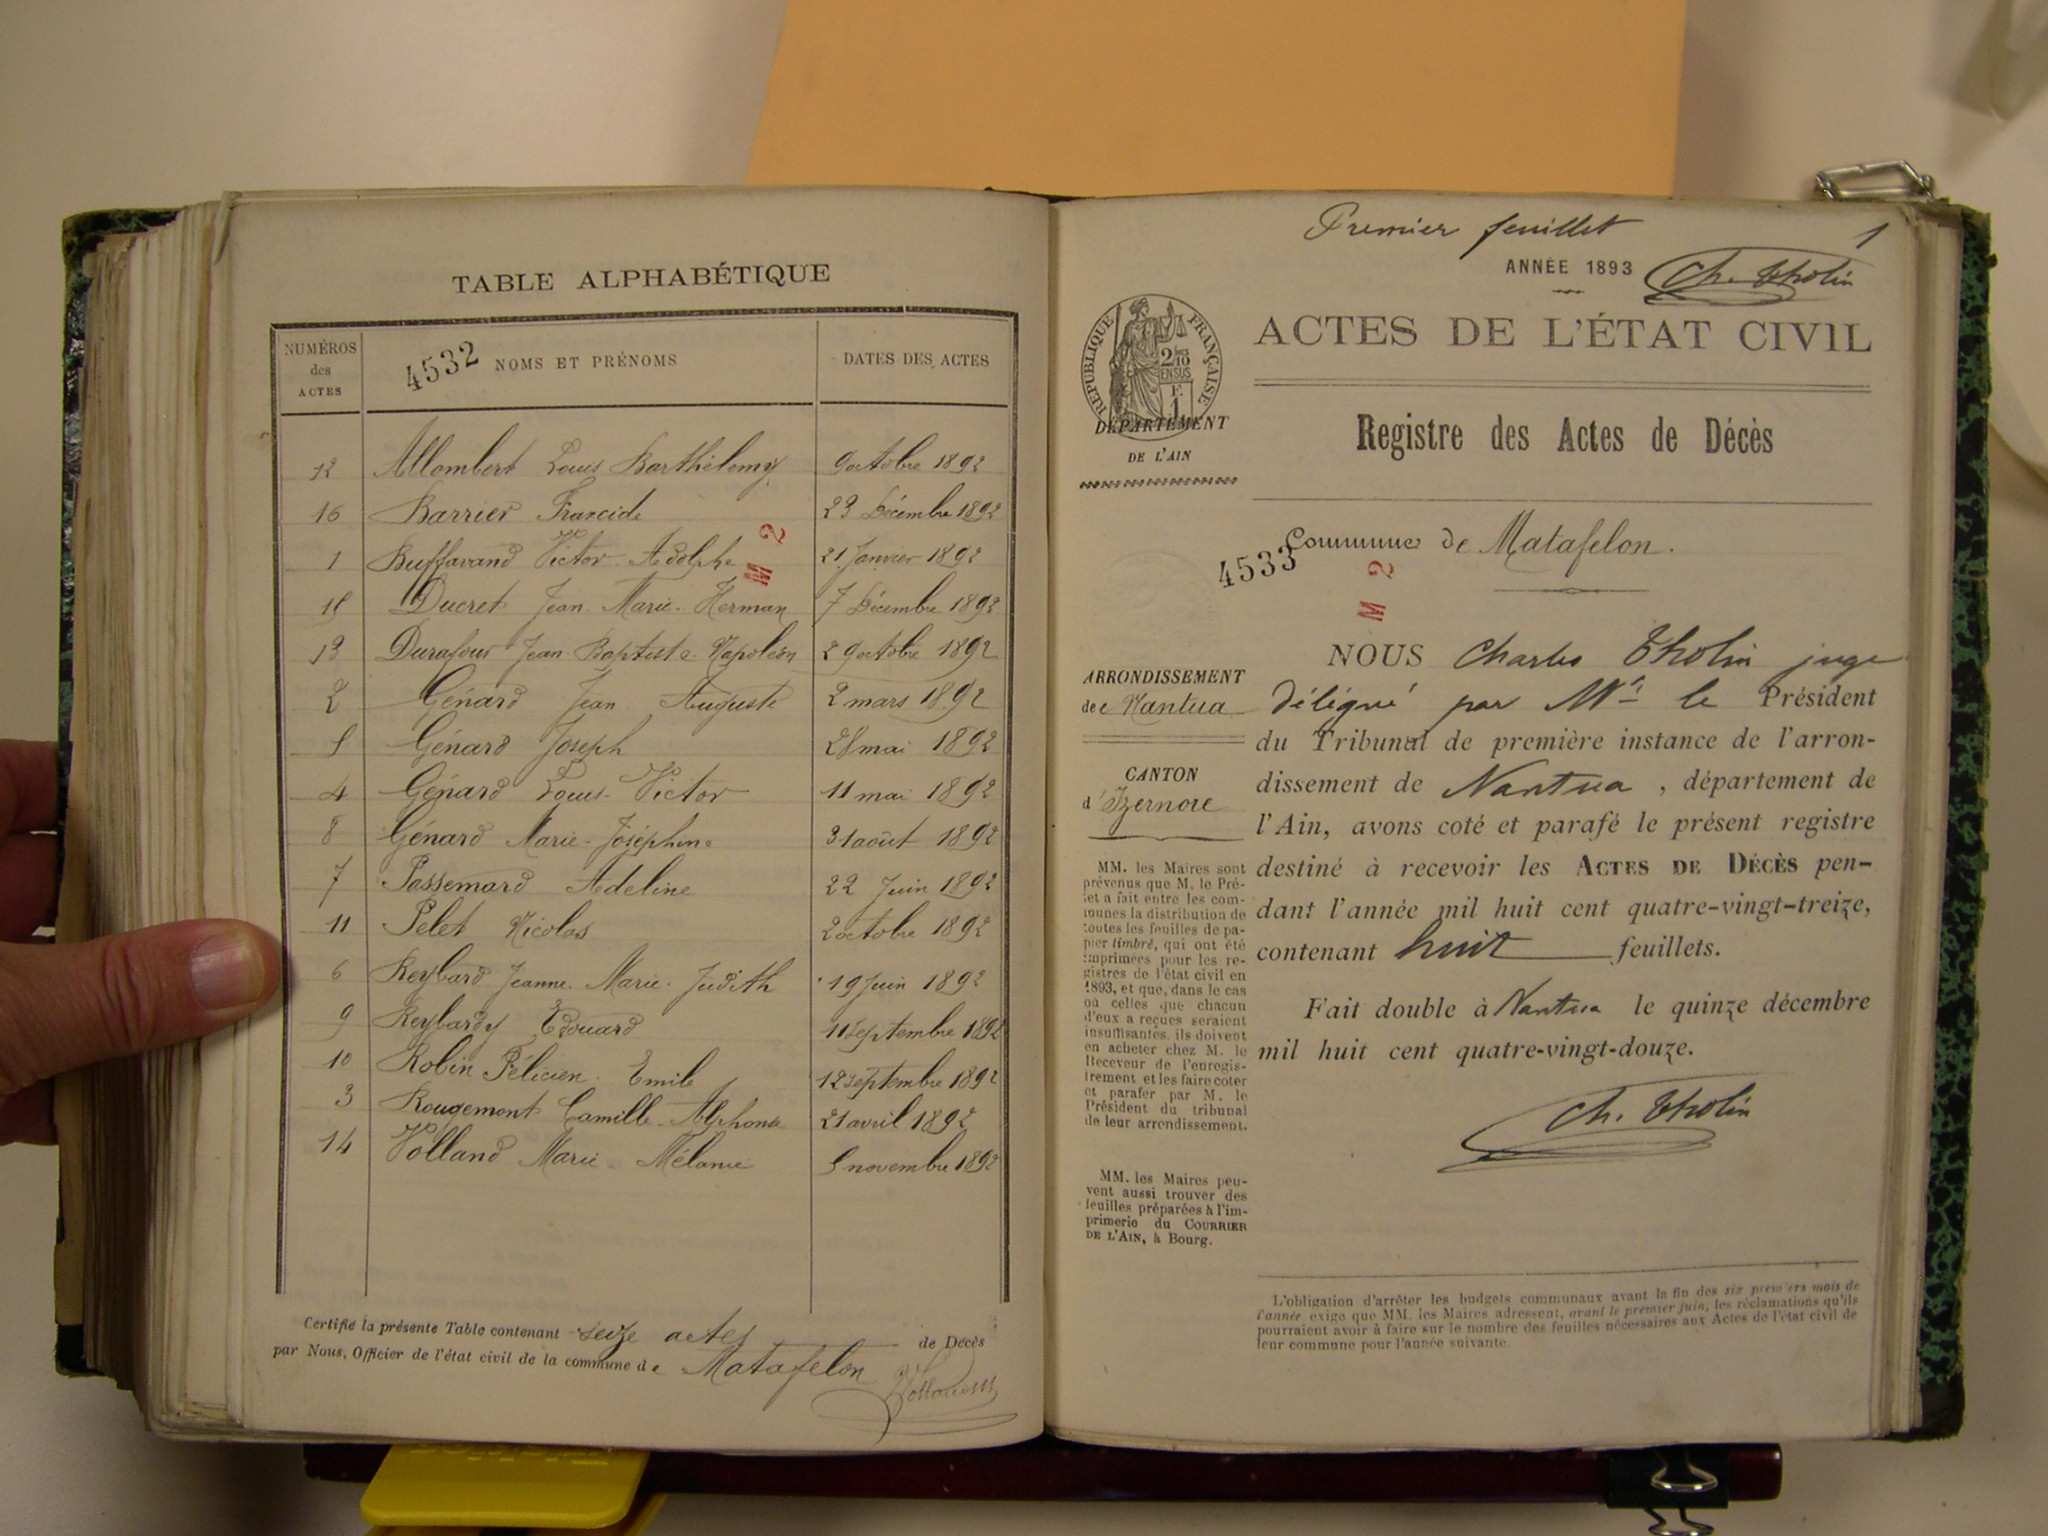 TABLE ALPHABÉTIQUE
NUMÉROS des ACTES
4532 NOMS ET PRÉNOMS
DATES DES ACTES
12 Allombert Louis Barthélemy 9 octobre 1892
16 Barrier Francide 23 Décembre 1892
1 Buffavand Victor Adolphe 21 Janvier 1892
15 Ducret Jean Marie Herman 7 Décembre 1892
13 Durafour Jean Baptiste Napoléon 29 octobre 1892
2 Génard Jean Auguste 2 mars 1892
5 Génard Joseph 28 mai 1892
4 Génard Louis Victor 11 mai 1892
8 Génard Marie Joséphine 31 août 1892
7 Passemard Adeline 22 Juin 1892
11 Pelet Nicolas 2 octobre 1892
6 Reybard Jeanne Marie Judith 19 Juin 1892
9 Reybardy Edouard 11 septembre 1892
10 Robin Félicien Emile 12 septembre 1892
3 Rougemont Camille Alphonse 21 avril 1892
14 Volland Marie Mélanie 5 novembre 1892
M 2
Certifié la présente Table contenant seize actes de Décès
par Nous, Officier de l'état civil de la commune de Matafelon
Premier feuillet 1
ANNÉE 1893 Ch. Tholin
RÉPUBLIQUE FRANÇAISE
2/10 EN SUS
E
1
ACTES DE L'ÉTAT CIVIL
DÉPARTEMENT
DE L'AIN
Registre des Actes de Décès
Commune de Matafelon.
4533
M 2
ARRONDISSEMENT
de Nantua
CANTON
d'Izernore
MM. les Maires sont
prévenus que M. le Pré-
fet a fait entre les com-
munes la distribution de
toutes les feuilles de pa-
pier timbré, qui ont été
imprimées pour les re-
gistres de l'état civil en
1893, et que, dans le cas
où celles que chacun
d'eux a reçues seraient
insuffisantes, ils doivent
en acheter chez M. le
Receveur de l'enregis-
trement et les faire coter
et parafer par M. le
Président du tribunal
de leur arrondissement.
MM. les Maires peu-
vent aussi trouver des
feuilles préparées à l'im-
primerie du COURRIER
DE L'AIN, à Bourg.
NOUS Charles Tholin juge
délégué par Mr le Président
du Tribunal de première instance de l'arron-
dissement de Nantua, département de
l'Ain, avons coté et parafé le présent registre
destiné à recevoir les ACTES DE DÉCÈS pen-
dant l'année mil huit cent quatre-vingt-treize,
contenant huit feuillets.
Fait double à Nantua le quinze décembre
mil huit cent quatre-vingt-douze.
Ch. Tholin
L'obligation d'arrêter les budgets communaux avant la fin des six premiers mois de
l'année exige que MM. les Maires adressent, avant le premier juin, les réclamations qu'ils
pourraient avoir à faire sur le nombre des feuilles nécessaires aux Actes de l'état civil de
leur commune pour l'année suivante.